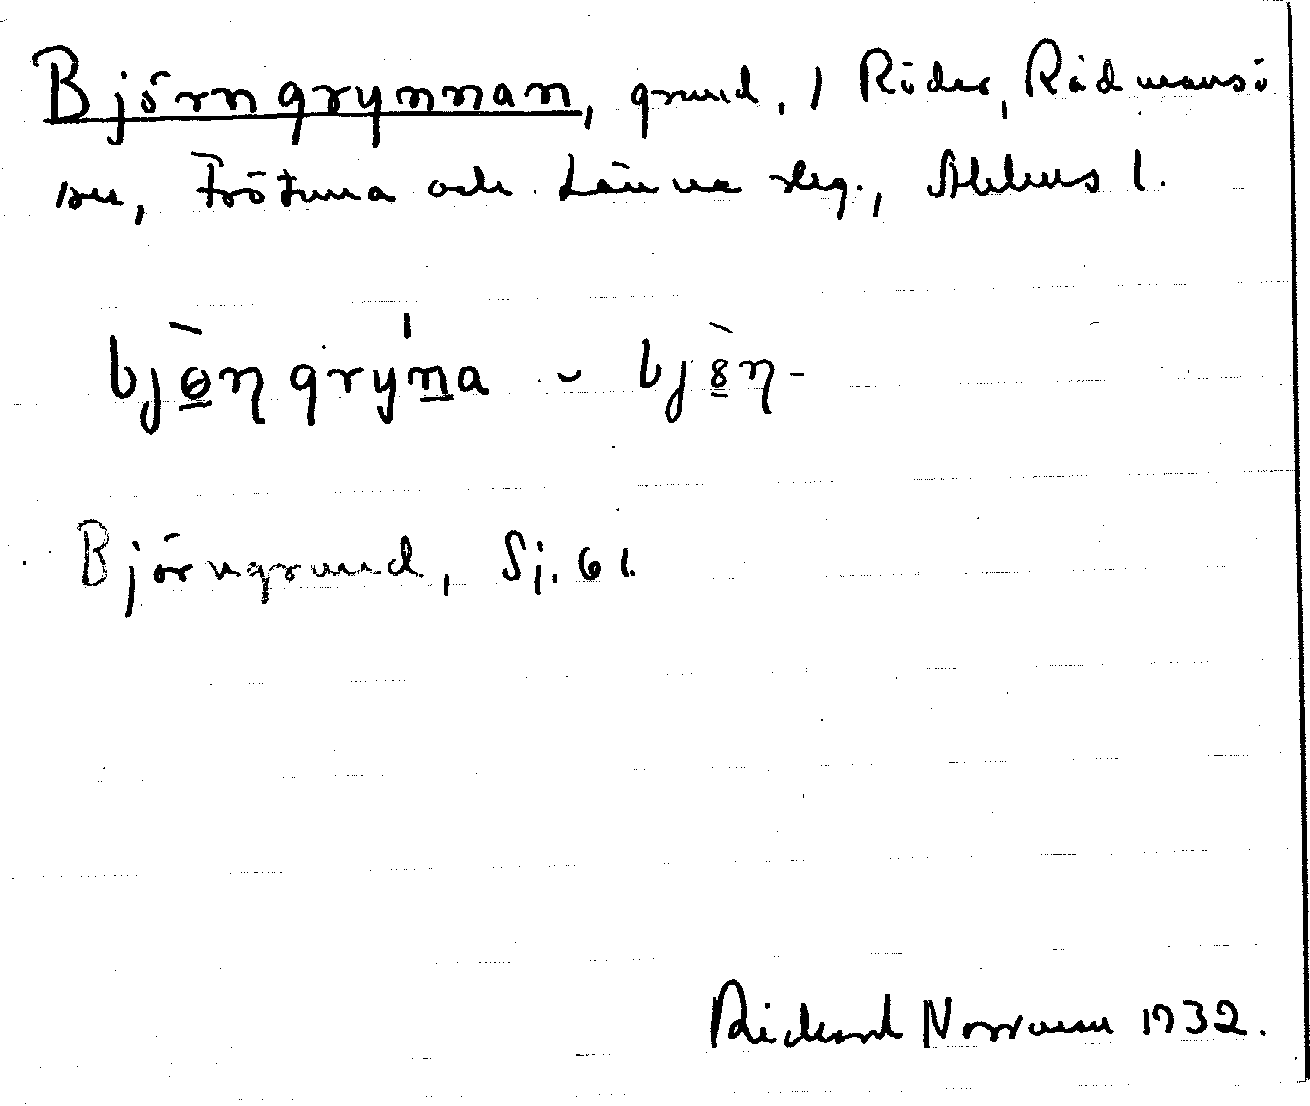 Björngrynnan, grund, / Röder, Rådmansö
sn, Frötuna och Länna slg., Sthlms l.
bjö̀ngrýna ~ bjö̀n-
Björngrund, Sj. 61.
Rickard Norrman 1932.